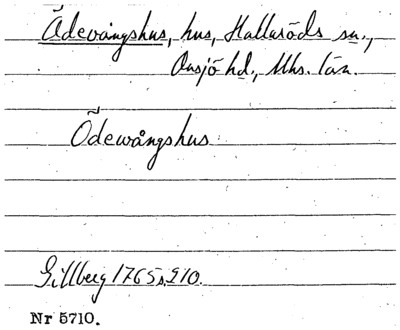 Ödevångshus, hus, Hallaröds sn.,
Onsjö hd., Mhs. län.
Ödewångshus
Gillberg 1765 s. 210.
Nr 5710.